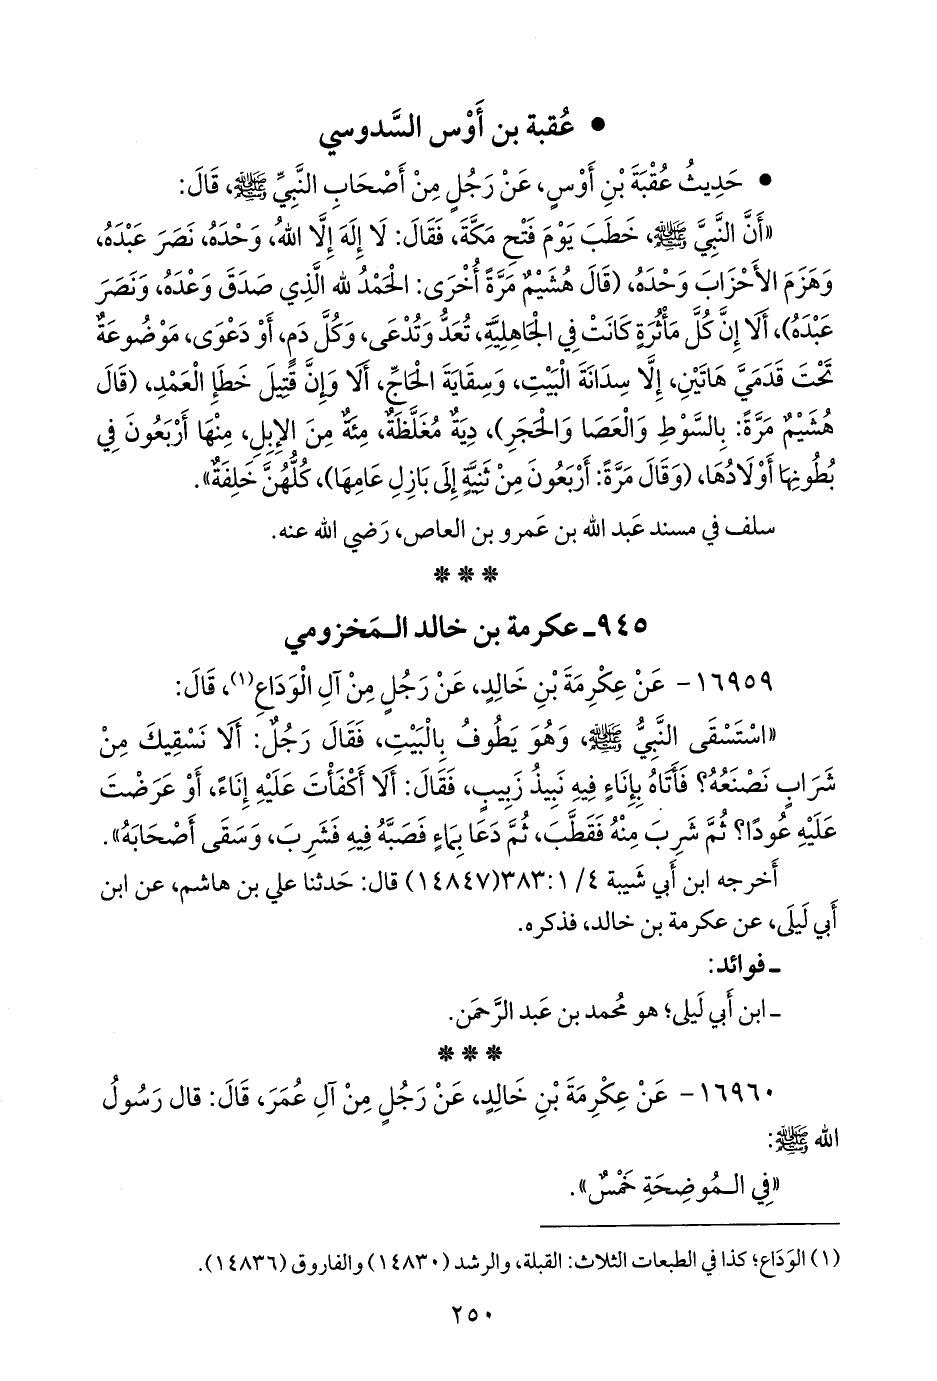 • عُقبة بن أَوْس السَّدوسي
• حَدِيثُ عُقْبَةَ بْنِ أَوْسٍ، عَنْ رَجُلٍ مِنْ أَصْحَابِ النَّبِيِّ ﷺ، قَالَ:
«أَنَّ النَّبِيَّ ﷺ، خَطَبَ يَوْمَ فَتْحِ مَكَّةَ، فَقَالَ: لَا إِلَهَ إِلَّا اللهُ، وَحْدَهُ، نَصَرَ عَبْدَهُ،
وَهَزَمَ الأَحْزَابَ وَحْدَهُ، (قَالَ هُشَيْمٌ مَرَّةً أُخْرَى: الْحَمْدُ لله الَّذِي صَدَقَ وَعْدَهُ، وَنَصَرَ
عَبْدَهُ)، أَلَا إِنَّ كُلَّ مَأْثُرَةٍ كَانَتْ فِي الْجَاهِلِيَّةِ، تُعَدُّ وَتُدْعَى، وَكُلَّ دَمٍ، أَوْ دَعْوَى، مَوْضُوعَةٌ
تَحْتَ قَدَمَيَّ هَاتَيْنِ، إِلَّا سِدَانَةَ الْبَيْتِ، وَسِقَايَةَ الْحَاجِّ، أَلَا وَإِنَّ قَتِيلَ خَطَإِ الْعَمْدِ، (قَالَ
هُشَيْمٌ مَرَّةً: بِالسَّوْطِ وَالْعَصَا وَالْحَجَرِ)، دِيَةٌ مُغَلَّظَةٌ، مِئَةٌ مِنَ الإِبِلِ، مِنْهَا أَرْبَعُونَ فِي
بُطُونِهَا أَوْلَادُهَا، (وَقَالَ مَرَّةً: أَرْبَعُونَ مِنْ ثَنِيَّةٍ إِلَى بَازِلِ عَامِهَا)، كُلُّهُنَّ خَلِفَةٌ».
سلف في مسند عَبد الله بن عَمرو بن العاص، رَضي الله عنه.
* * *
٩٤٥ـ عكرمة بن خالد الـمَخزومي
١٦٩٥٩- عَنْ عِكْرِمَةَ بْنِ خَالِدٍ، عَنْ رَجُلٍ مِنْ آلِ الْوَدَاعِ(١)، قَالَ:
«اسْتَسْقَى النَّبِيُّ ﷺ، وَهُوَ يَطُوفُ بِالْبَيْتِ، فَقَالَ رَجُلٌ: أَلَا نَسْقِيكَ مِنْ
شَرَابٍ نَصْنَعُهُ؟ فَأَتَاهُ بِإِنَاءٍ فِيهِ نَبِيذُ زَبِيبٍ، فَقَالَ: أَلَا أَكْفَأْتَ عَلَيْهِ إِنَاءً، أَوْ عَرَضْتَ
عَلَيْهِ عُودًا؟ ثُمَّ شَرِبَ مِنْهُ فَقَطَّبَ، ثُمَّ دَعَا بِمَاءٍ فَصَبَّهُ فِيهِ فَشَرِبَ، وَسَقَى أَصْحَابَهُ».
أَخرجه ابن أَبي شَيبة ٤/ ١:٣٨٣(١٤٨٤٧) قال: حَدثنا علي بن هاشم، عن ابن
أَبي لَيلَى، عن عكرمة بن خالد، فذكره.
ـ فوائد:
ـ ابن أَبي لَيلى؛ هو مُحمد بن عَبد الرَّحمَن.
* * *
١٦٩٦٠- عَنْ عِكْرِمَةَ بْنِ خَالِدٍ، عَنْ رَجُلٍ مِنْ آلِ عُمَرَ، قَالَ: قال رَسُولُ
الله ﷺ:
«فِي الـمُوضِحَةِ خَمْسٌ».
(١) الوَدَاع؛ كذا في الطبعات الثلاث: القبلة، والرشد (١٤٨٣٠) والفاروق (١٤٨٣٦).
٢٥٠